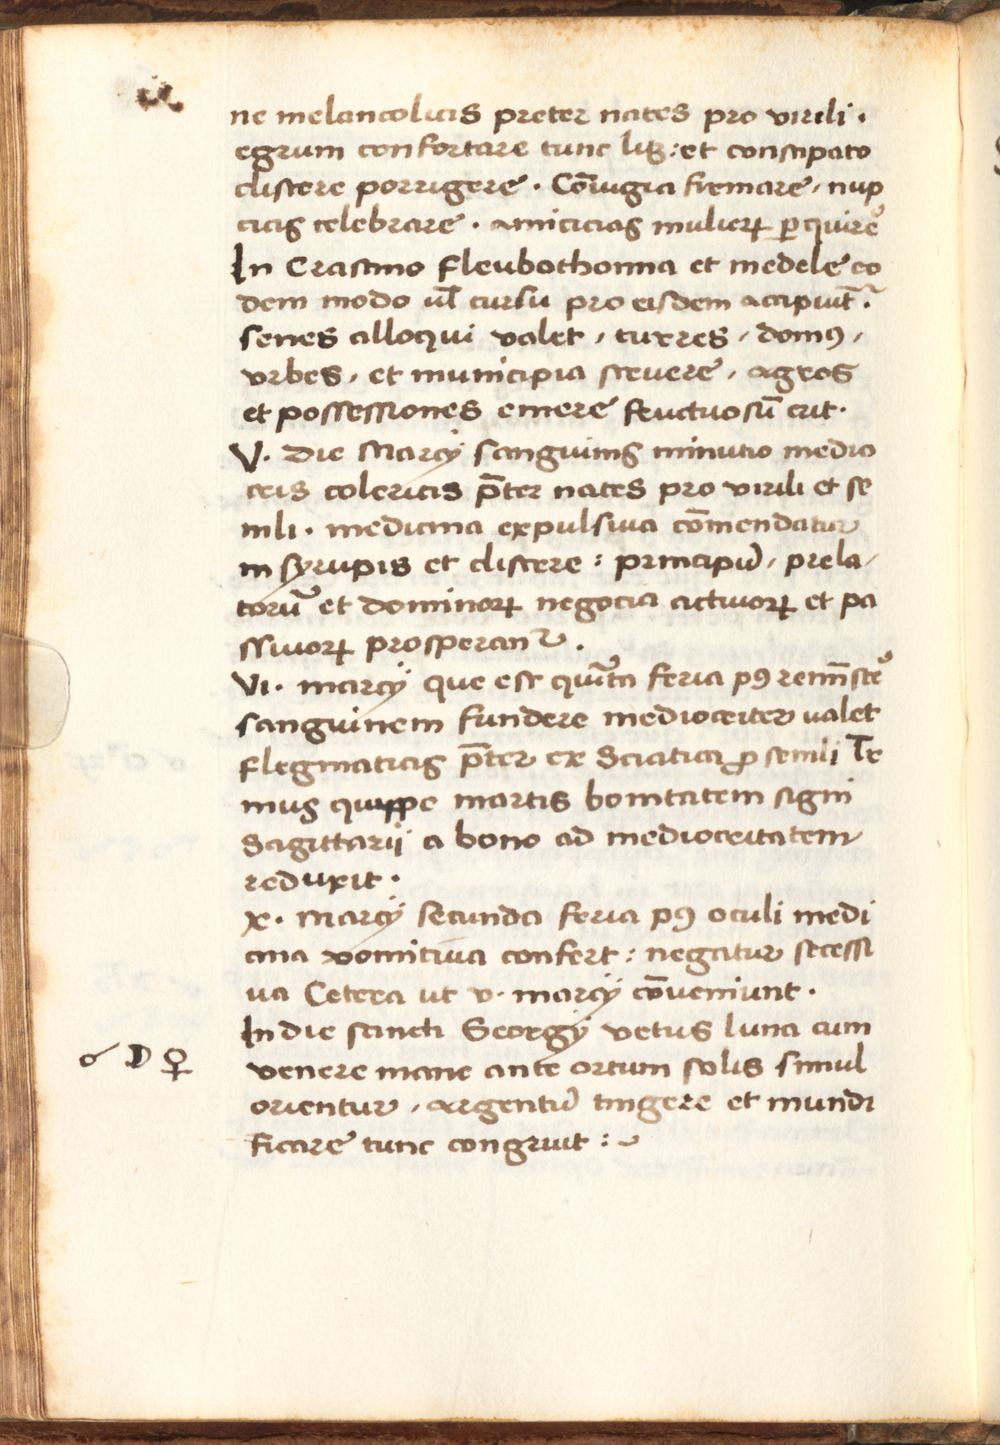 ne melancolicis preter nates pro virili .
egrum confortare tunc lib₃ : et constipato
clistere porrigere . Cōiugia firmare , nup
ciis celebrare . amicicias mulierꝝ ꝑquirē
In Crastino fleubothomia et medele eo
dem modo ul̄ cursu pro eisdem accipiūt̄ .
senes alloqui valet , turres , domꝯ ,
vrbes , et municipia struere , agros
et possessiones emere fructuosū erit .
V . die Marcij sanguinis minutio medio
cris colericis p̄ter nates pro virili et se
nili . medicina expulsiua cōmendatur
in syrupis et clistere : principū , prela
torū et dominorꝝ negocia actiuorꝝ et pa
ssiuorꝝ prosperant᷑ .
VI . marcij que est quīta feria pꝯ remīscē
sanguinem fundere mediocriter ualet
flegmaticis p̄ter ex Sciatica ꝓ semli Te
mus quippe martis bonitatem signi
Sagittarij a bono ad mediocritatem
reduxit .
X . Marcij secunda feria pꝯ oculi medi
cina vomitiua confert : negatur secessi
ua Cetera ut v . marcij cōueniunt .
In die sancti Georgij vetus luna cum
☌ ☽ ♀
venere mane ante ortum solis simul
orientur , argentū tingere et mundi
ficare tunc congruit :